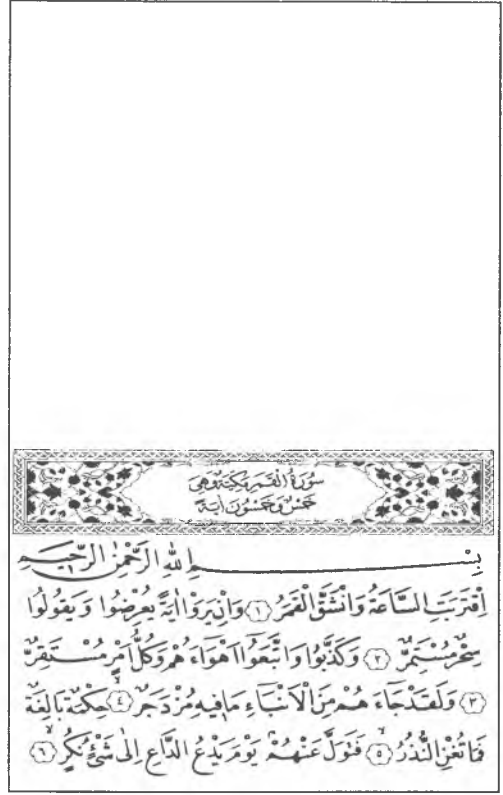 سُورَةُ الْقَمَرِ مَكِّيَّةٌ وَهِيَ
خَمْسٌ وَخَمْسُونَ اٰيَةً
بِسْمِ اللّٰهِ الرَّحْمٰنِ الرَّحِيمِ
اِقْتَرَبَتِ السَّاعَةُ وَانْشَقَّ الْقَمَرُ ﴿١﴾ وَاِنْ يَرَوْا اٰيَةً يُعْرِضُوا وَيَقُولُوا
سِحْرٌ مُسْتَمِرٌّ ﴿٢﴾ وَكَذَّبُوا وَاتَّبَعُوا اَهْوَاءَهُمْ وَكُلُّ اَمْرٍ مُسْتَقِرٌّ
﴿٣﴾ وَلَقَدْ جَاءَهُمْ مِنَ الْاَنْبَاءِ مَا فِيهِ مُزْدَجَرٌ ﴿٤﴾ حِكْمَةٌ بَالِغَةٌ
فَمَا تُغْنِ النُّذُرُ ﴿٥﴾ فَتَوَلَّ عَنْهُمْ يَوْمَ يَدْعُ الدَّاعِ اِلٰى شَيْءٍ نُكُرٍ ﴿٦﴾